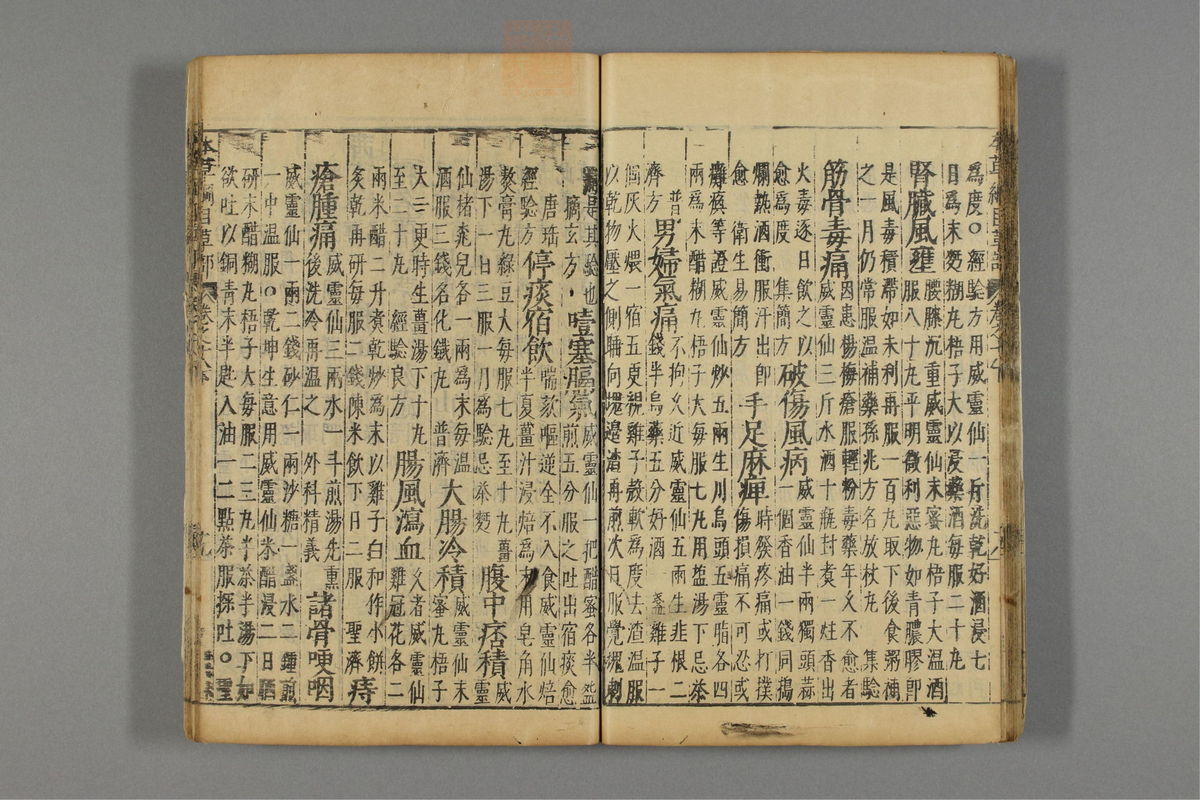 本草綱目草部
爲度○經驗方用威靈仙一斤洗乾好酒浸七
日爲末麪糊丸梧子大以浸藥酒每服二十丸
腎臟風壅
腰膝沉重威靈仙末蜜丸梧子大溫酒
服八十丸平明微利惡物如青膿膠即
是風毒積滯如未利再服一百丸取下後食粥補
之一月仍常服溫補藥孫兆方名放杖丸 集驗
筋骨毒痛
因患楊梅瘡服輕粉毒藥年久不愈者
威靈仙三斤水酒十瓶封煮一炷香出
火毒逐日飲之以
愈爲度 集簡方
破傷風病
威靈仙半兩獨頭蒜
一個香油一錢同搗
爛熱酒衝服汗出即
愈 衛生易簡方
手足麻痺
時發疼痛或打撲
傷損痛不可忍或
癱瘓等證威靈仙炒五兩生川烏頭五靈脂各四
兩爲末醋糊丸梧子大每服七丸用盬湯下忌茶
普
濟方
男婦氣痛
不拘久近威靈仙五兩生韭根二
錢半烏藥五分好酒一盞雞子一
個灰火煨一宿五更視雞子殼軟爲度去渣溫服
以乾物壓之側睡向塊邊渣再煎次日服覺塊刺
痛是其驗也
摘玄方
噎塞膈氣
威靈仙一把醋蜜各半盌
煎五分服之吐出宿痰愈
唐瑤
經驗方
停痰宿飲
喘欬嘔逆全不入食威靈仙焙
半夏薑汁浸焙爲末用皂角水
熬膏丸綠豆大每服七丸至十丸薑
湯下一日三服一月爲驗忌茶麪
腹中痞積
威
靈
仙楮桃兒各一兩爲末每溫
酒服三錢名化鐵丸 普濟
大腸冷積
威靈仙末
蜜丸梧子
大一更時生薑湯下十丸
至二十丸 經驗良方
腸風瀉血
久者威靈仙
雞冠花各二
兩米醋二升煮乾炒爲末以雞子白和作小餅
炙乾再研每服二錢陳米飲下日二服 聖濟
痔
瘡腫痛
威靈仙三兩水一斗煎湯先熏
後洗冷再溫之 外科精義
諸骨哽咽
威靈仙一兩二錢砂仁一兩沙糖一盞水二鍾煎
一中溫服○乾坤生意用威靈仙米醋浸二日晒
研末醋糊丸梧子大每服二三丸半茶半湯下如
欲吐以銅青末半匙入油一二點茶服探吐○聖
本草綱目草部